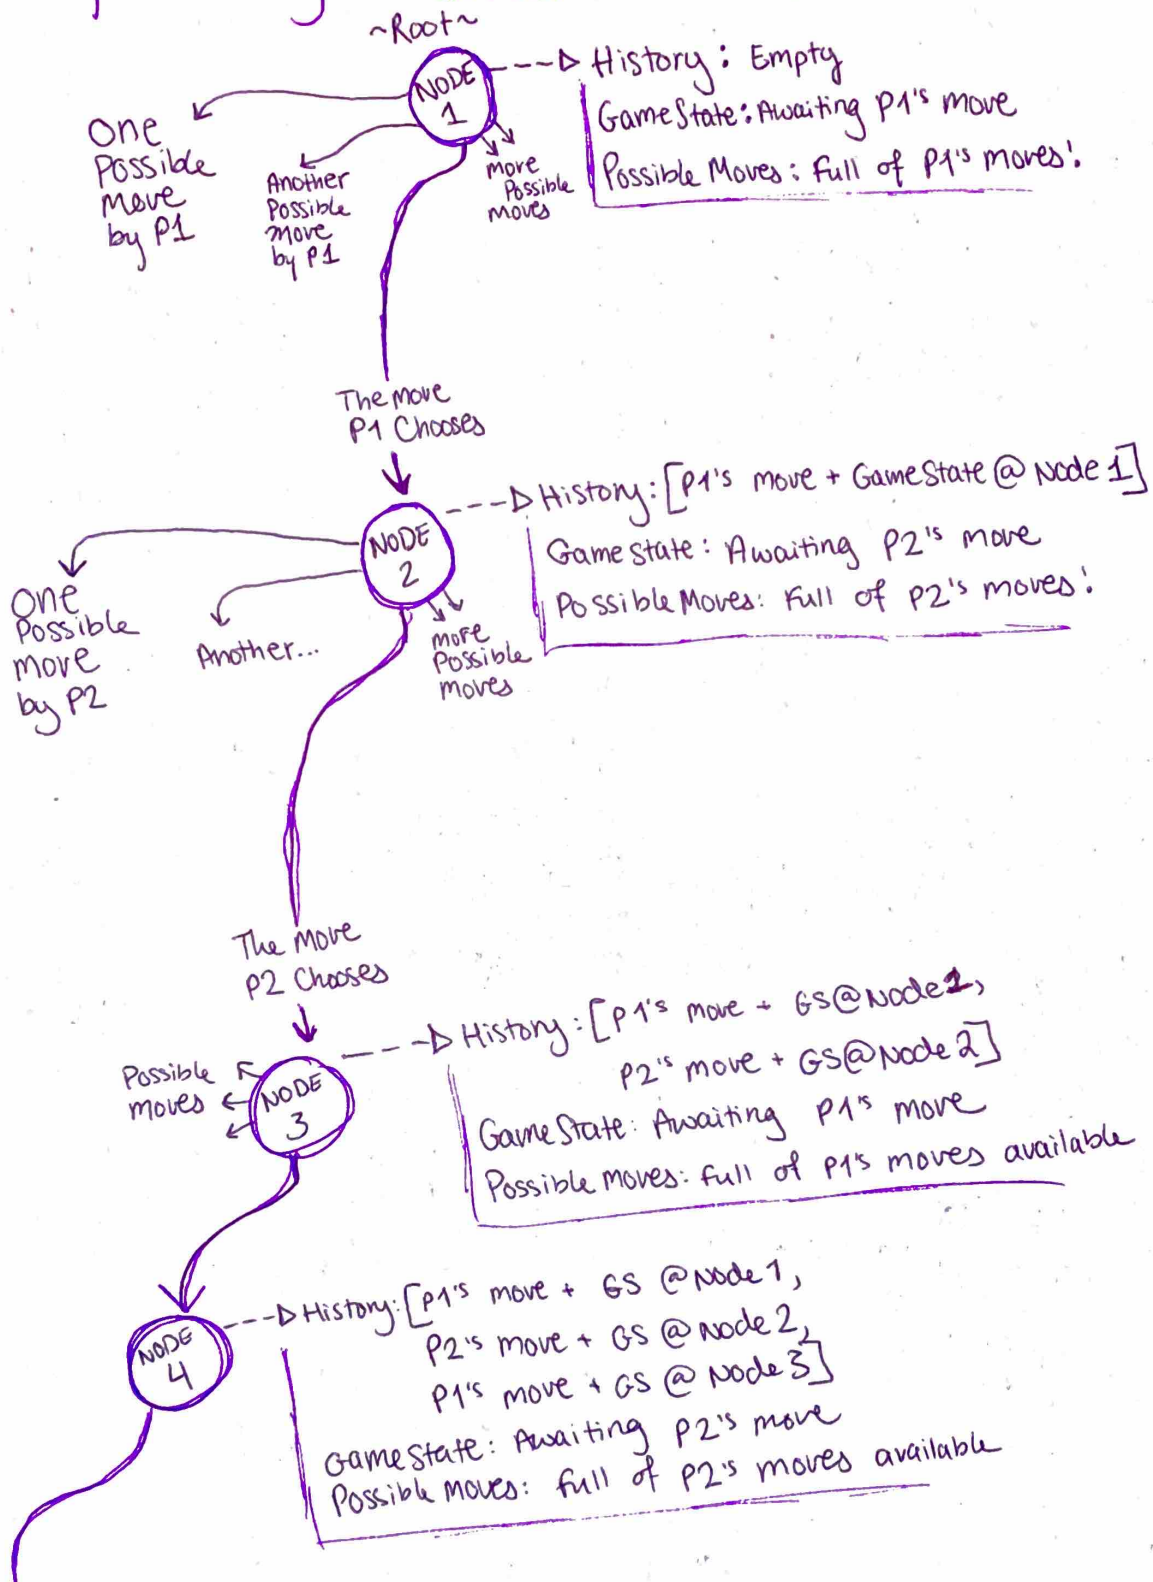 ~Root~
NODE
1
History: Empty
GameState: Awaiting P1's move
Possible Moves: Full of P1's moves!
One
Possible
move
by P1
Another
Possible
move
by P1
more
Possible
moves
The move
P1 Chooses
NODE
2
History: [P1's move + GameState @ Node 1]
GameState: Awaiting P2's move
Possible Moves: Full of P2's moves!
One
Possible
move
by P2
Another...
more
Possible
moves
The move
P2 Chooses
NODE
3
Possible
moves
History: [P1's move + GS@Node1,
P2's move + GS@Node2]
GameState: Awaiting P1's move
Possible Moves: full of P1's moves available
NODE
4
History: [P1's move + GS @Node1,
P2's move + GS @Node2,
P1's move + GS @ Node3]
GameState: Awaiting P2's move
Possible Moves: full of P2's moves available